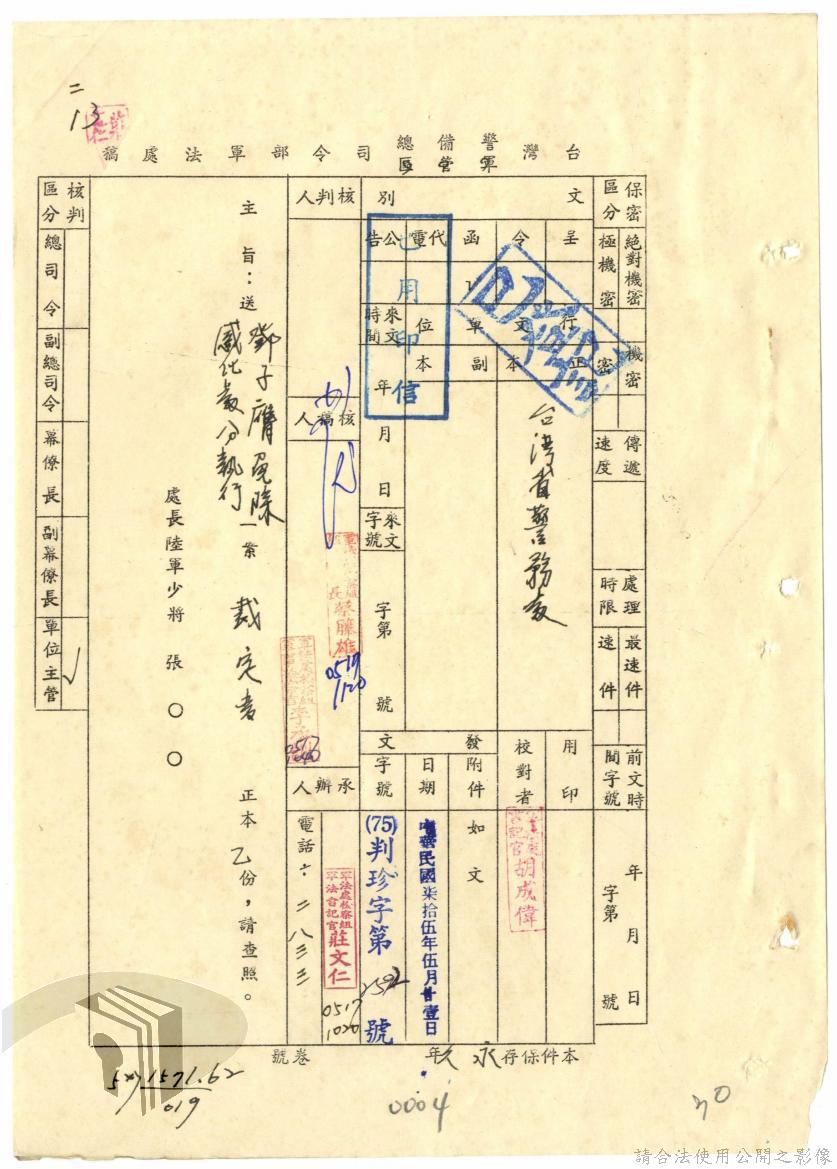 二
13
台灣警備總司令部軍法處稿
軍管區
保密區分
絕對機密
極機密
機密
密
傳遞速度
處理時限
最速件
速件
前文時間字號
年月日
字第號
文別
呈
令
函
代電
公告
行文單位
正本
副本
台灣省警務處
來文時間
年月日
來文字號
字第號
已用印信
用印
校對者
書記官胡成偉
發文
附件
如文
日期
中華民國柒拾伍年伍月廿壹日
字號
(75)判珍字第2592號
核判人
核稿人
長蔡騰雄
0519
1120
承辦人
軍法處檢察組
軍法書記官莊文仁
0517
1020
電話:六二八三三
主旨:送鄧子膺免除感化處分執行一案裁定書正本乙份,請查照。
處長陸軍少將張○○
核判區分
總司令
副總司令
幕僚長
副幕僚長
單位主管
✓
本件保存永久年
卷號
1571.62
019
0004
請合法使用公開之影像